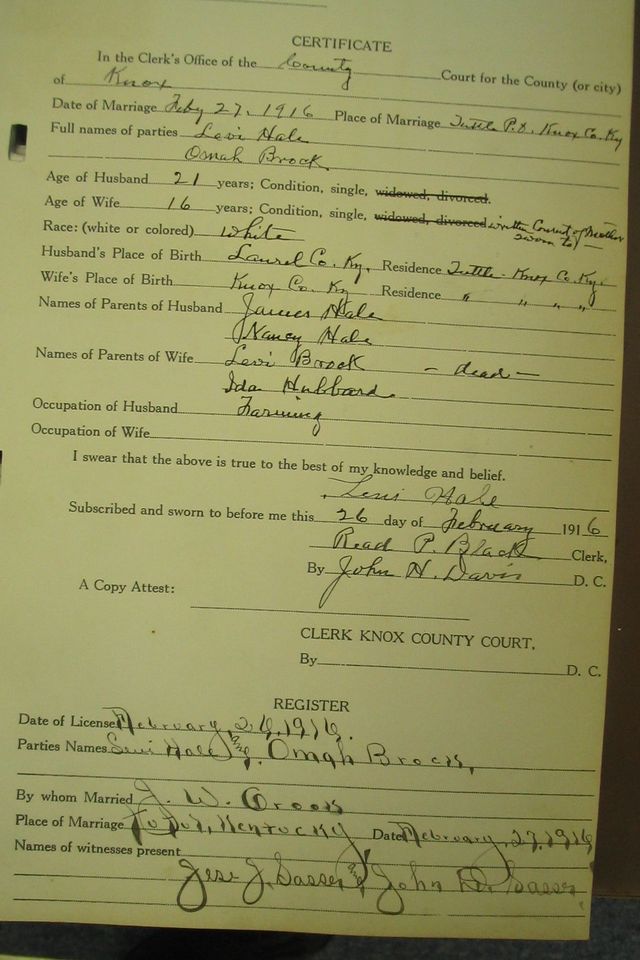 CERTIFICATE
In the Clerk's Office of the County Court for the County (or city)
of Knox
Date of Marriage Feby 27, 1916 Place of Marriage Tuttle P.O. Knox Co. Ky
Full names of parties Levi Hale
Omah Brock
Age of Husband 21 years; Condition, single, widowed, divorced.
Age of Wife 16 years; Condition, single, widowed, divorced written Consent of Mother
sworn to
Race: (white or colored) White
Husband's Place of Birth Laurel Co. Ky. Residence Tuttle - Knox Co. Ky.
Wife's Place of Birth Knox Co. Ky Residence " " " "
Names of Parents of Husband James Hale
Nancy Hale
Names of Parents of Wife Levi Brock - dead -
Ida Hubbard
Occupation of Husband Farming
Occupation of Wife
I swear that the above is true to the best of my knowledge and belief.
Levi Hale
Subscribed and sworn to before me this 26 day of February 1916
Read P. Black Clerk,
By John H. Davis D. C.
A Copy Attest:
CLERK KNOX COUNTY COURT.
By D. C.
REGISTER
Date of License February, 26, 1916.
Parties Names Levi Hale and Omah Brock,
By whom Married J. W.
Place of Marriage Kentucky Date February, 27, 1916
Names of witnesses present
Jese J. Sasser and John D. Sasser